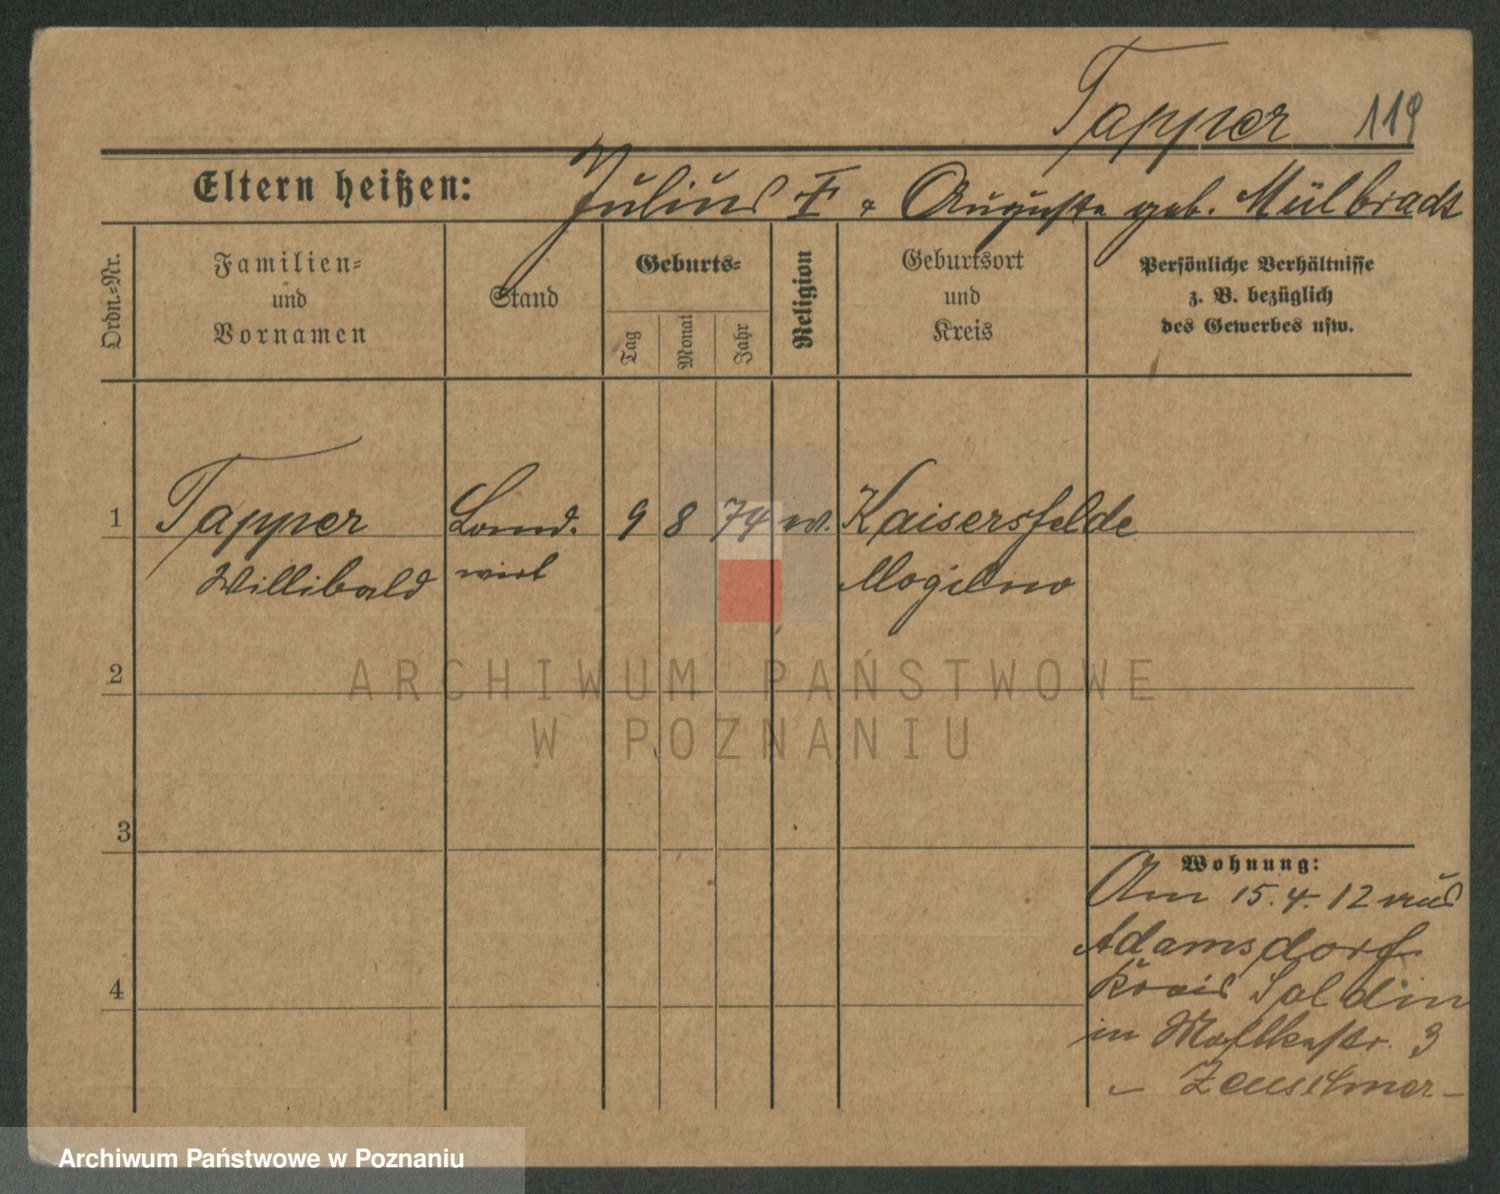 Tapper 119
Eltern heißen: Julius & Auguste geb. Mülbradt
Ordn.-Nr.
Familien-
und
Vornamen
Stand
Geburts-
Tag
Monat
Jahr
Religion
Geburtsort
und
Kreis
Persönliche Verhältnisse
z. B. bezüglich
des Gewerbes usw.
1 Tapper Land- 9 8 74 ev. Kaisersfelde
Willibald wirt Mogilno
2
3
4
Wohnung:
Am 15.4.12 aus
Adamsdorf
Kreis Soldin
in Moltkestr. 3
ARCHIWUM PAŃSTWOWE
W POZNANIU
Archiwum Państwowe w Poznaniu